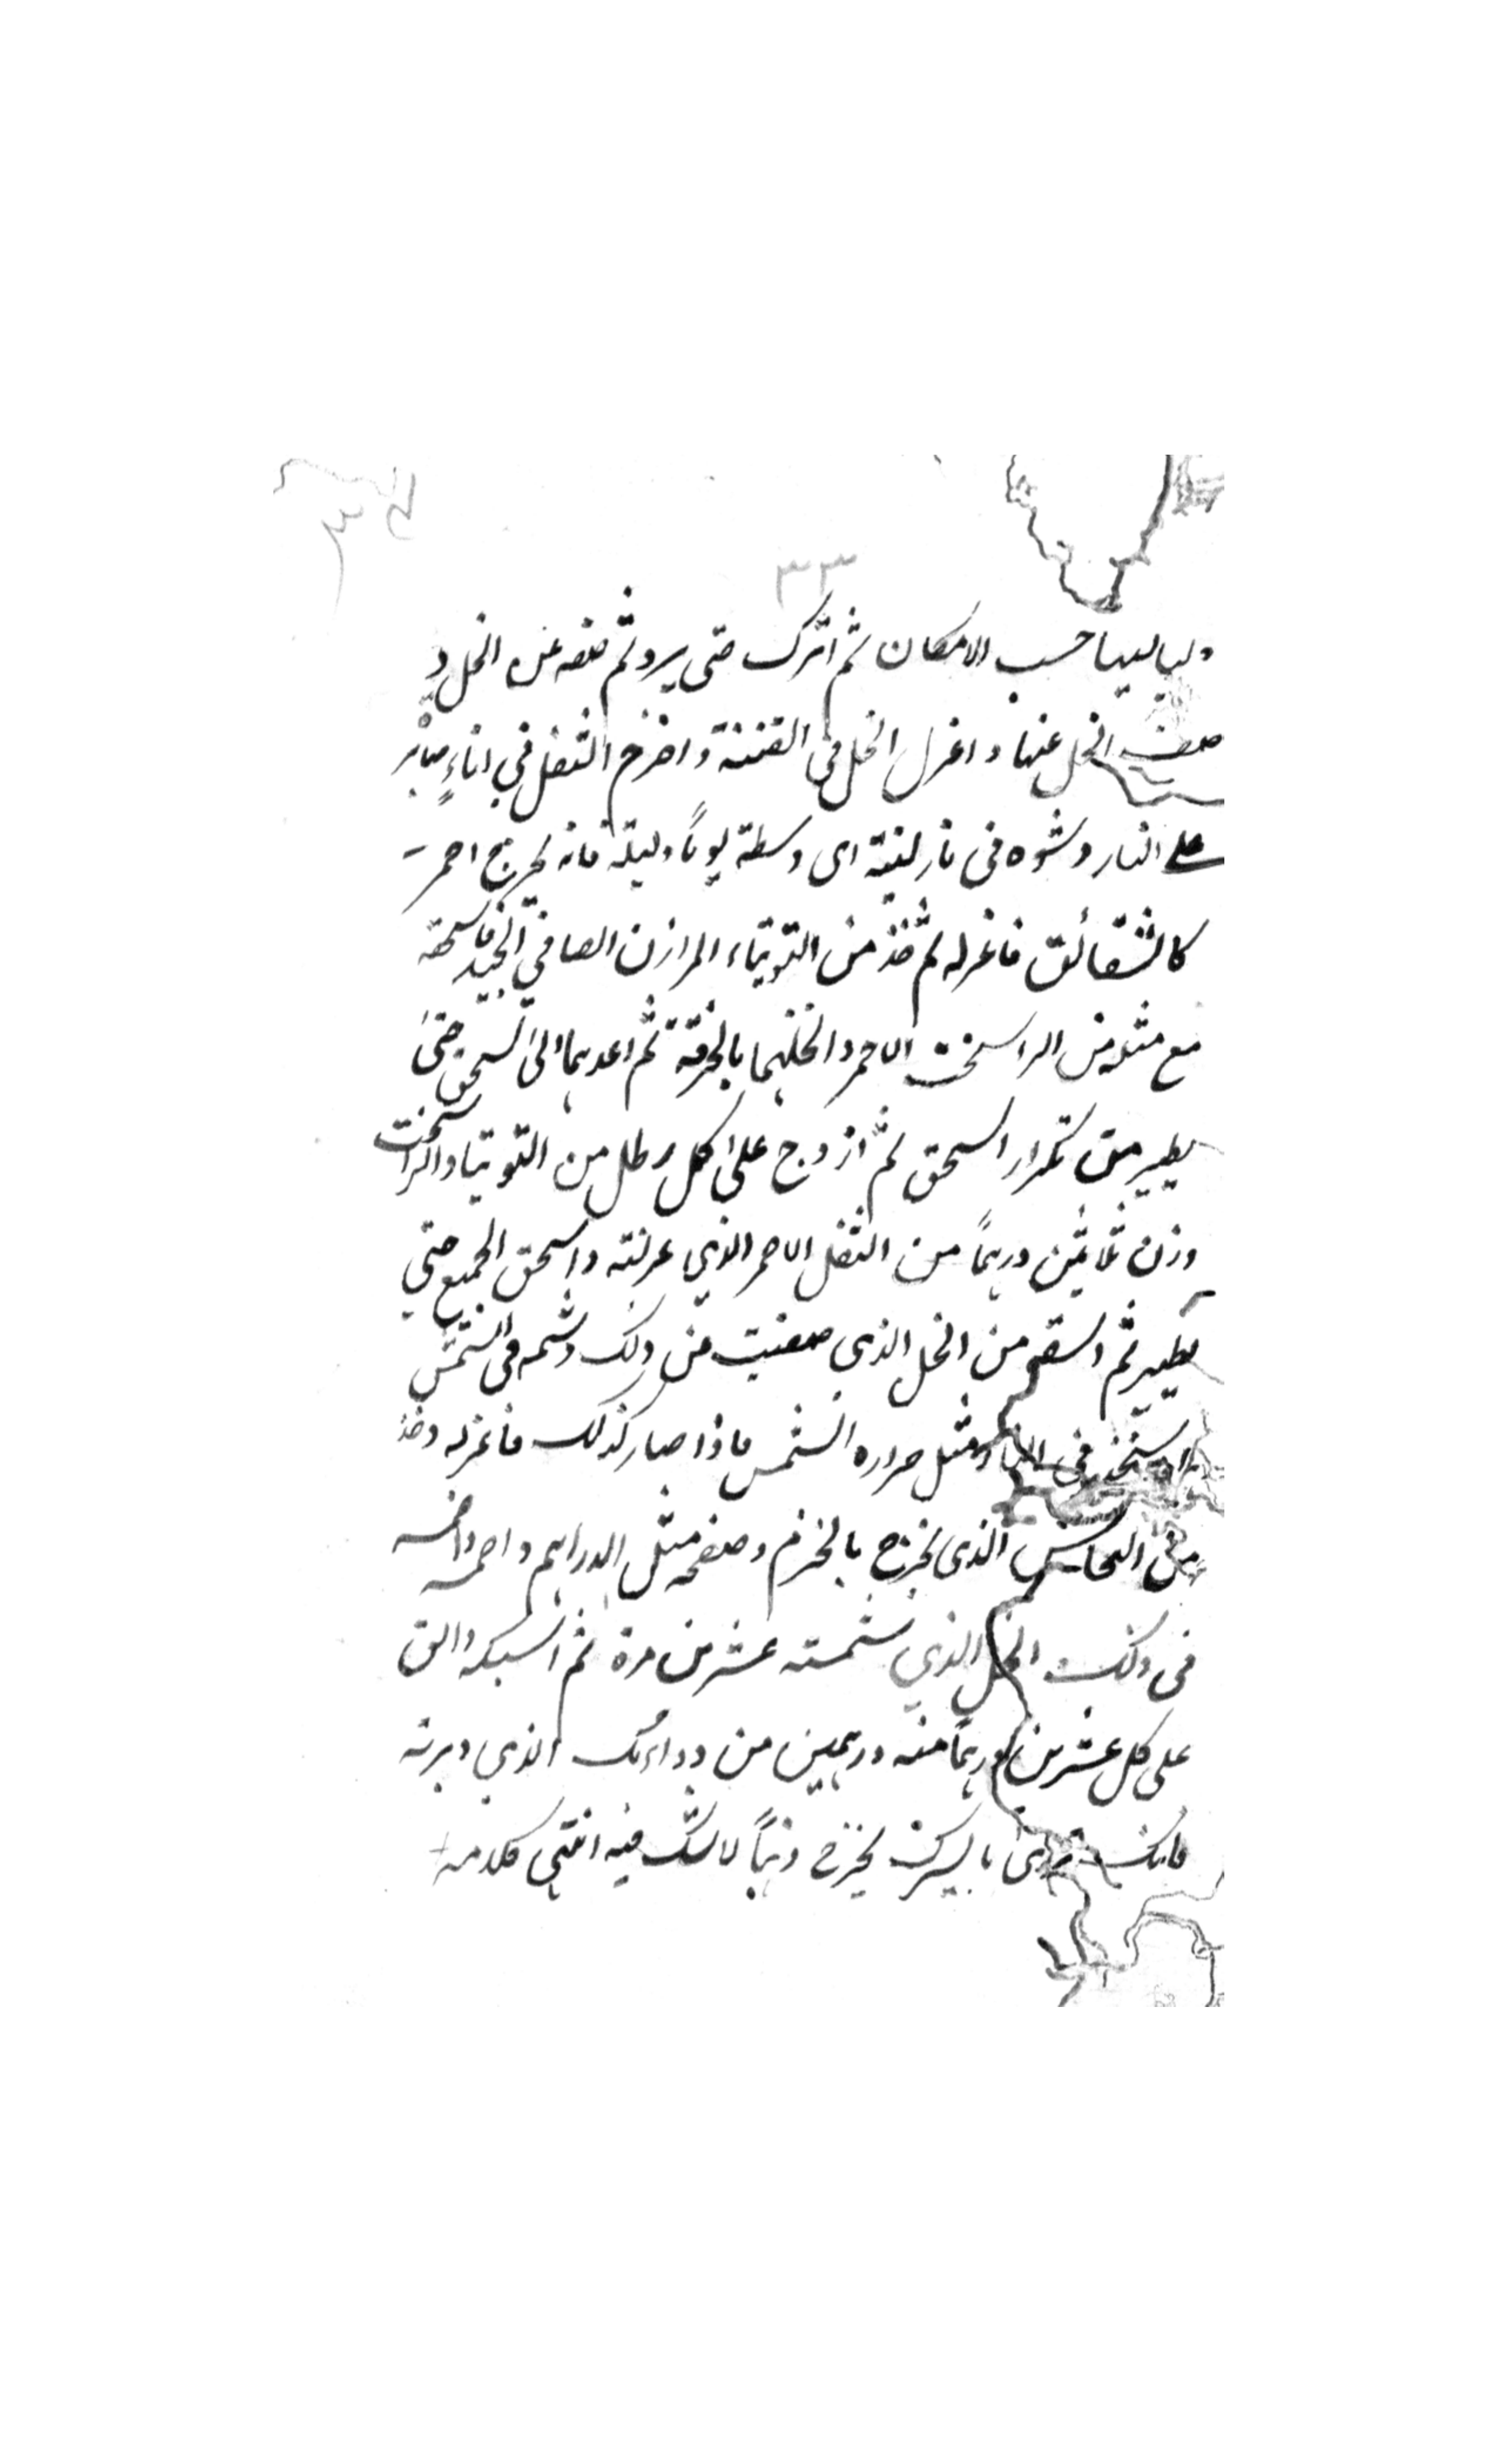 ٣٣
ولياليها حسب الامكان ثم اترك حتى يبرد ثم صفه عن الخل و
صف الخل عنها واعزل الخل فى القنينة واخرج الثفل في اناءٍ
على النار وشوه فى نار لينة اى وسطة يوماً وليلة فانه يخرج احمر
كالشقائق فاعزله ثم خذ من التوتياء المرازن الصافي الجيد فاسحقه
مع مثله من الراسخت الاحمر وانخلهما بالخرقة ثم اعدهما الى السحق حتى
يطير من تكرار السحق ثم ازوج على كل رطل من التوتيا والراسخت
وزن ثلاثين درهماً من الثفل الاحمر الذي عزلته واسحق الجميع حتي
يطير ثم اسقه من الخل الذى صفيت عن ذلك وشمه فى الشمس
فى النار مثل حراره الشمس فاذا صار كذلك فاعزله وخذ
من النحاس الذى يخرج بالخزم وصفحه مثل الدراهم واحمه واغمسه
فى ذلك الخل الذي شمسته عشرين مرة ثم اسبكه والق
على كل عشرين درهماً منه درهمين من دوائك الذي دبرته
فانك ترى ما يسرك يخرج ذهباً لا شك فيه انتهى كلامه